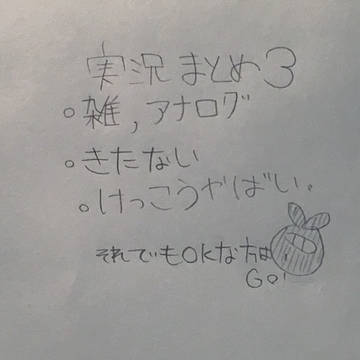 実況まとめ3
。雑,アナログ
。きたない
。けっこうやばい。
それでもOKな方は
GO!